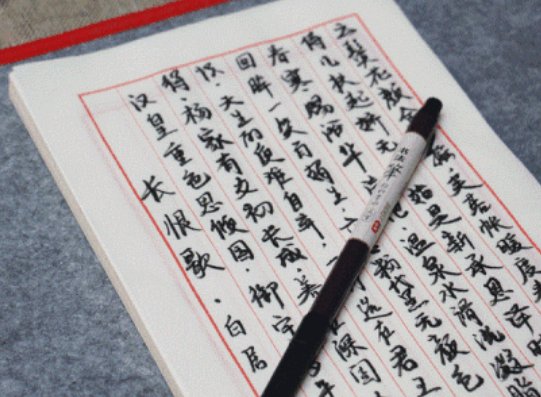 长恨歌·白居
汉皇重色思倾国·御宇
得·杨家有女初长成·养
深闺
识·天生丽质难自弃·
选在君王
回眸一笑百媚生·六
粉黛无颜色
春寒赐浴华清
温泉水滑洗凝脂
侍儿扶起娇无
始是新承恩泽时
云鬓花颜金
摇·芙蓉帐暖度春